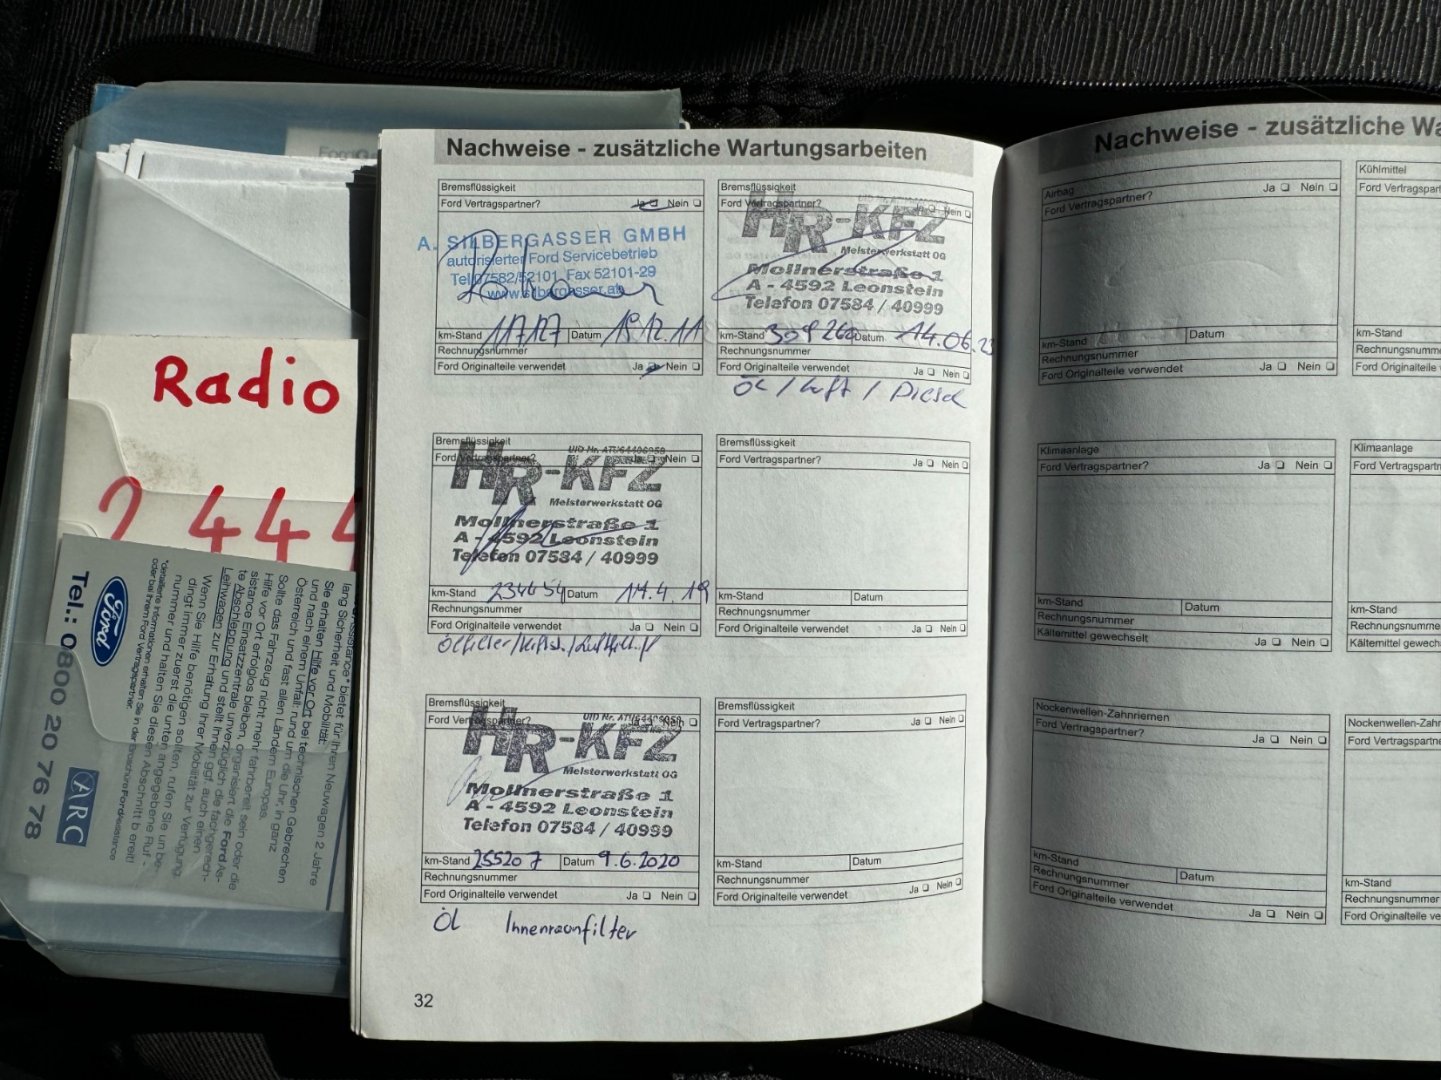 Nachweise - zusätzliche Wartungsarbeiten
Bremsflüssigkeit
Ford Vertragspartner? Ja Nein
A. SILBERGASSER GMBH
autorisierter Ford Servicebetrieb
Tel 07582/52101, Fax 52101-29
www.silbergasser.at
km-Stand 117127 Datum 19.12.11
Rechnungsnummer
Ford Originalteile verwendet Ja Nein
Bremsflüssigkeit
Ford Vertragspartner? Ja Nein
UID Nr. ATU64496959
HR-KFZ
Meisterwerkstatt OG
Mollnerstraße 1
A - 4592 Leonstein
Telefon 07584 / 40999
km-Stand Datum 17.4.19
Rechnungsnummer
Ford Originalteile verwendet Ja Nein
Bremsflüssigkeit
Ford Vertragspartner? Ja Nein
HR-KFZ
Meisterwerkstatt OG
Mollnerstraße 1
A - 4592 Leonstein
Telefon 07584 / 40999
km-Stand 255207 Datum 9.6.2020
Rechnungsnummer
Ford Originalteile verwendet Ja Nein
Öl Innenraumfilter
32
Bremsflüssigkeit
Ford Vertragspartner? Ja Nein
HR-KFZ
Meisterwerkstatt OG
Mollnerstraße 1
A - 4592 Leonstein
Telefon 07584 / 40999
km-Stand 309260 Datum 14.06.23
Rechnungsnummer
Ford Originalteile verwendet Ja Nein
Öl / Luft / Diesel
Bremsflüssigkeit
Ford Vertragspartner? Ja Nein
km-Stand Datum
Rechnungsnummer
Ford Originalteile verwendet Ja Nein
Bremsflüssigkeit
Ford Vertragspartner? Ja Nein
km-Stand Datum
Rechnungsnummer
Ford Originalteile verwendet Ja Nein
Nachweise - zusätzliche Wa
Airbag
Ford Vertragspartner? Ja Nein
km-Stand Datum
Rechnungsnummer
Ford Originalteile verwendet Ja Nein
Klimaanlage
Ford Vertragspartner? Ja Nein
km-Stand Datum
Rechnungsnummer
Kältemittel gewechselt Ja Nein
Nockenwellen-Zahnriemen
Ford Vertragspartner? Ja Nein
km-Stand Datum
Rechnungsnummer
Ford Originalteile verwendet Ja Nein
Kühlmittel
Ford Vertragspart
km-Stand
Rechnungsnummer
Ford Originalteile
Klimaanlage
Ford Vertragspartn
km-Stand
Rechnungsnumme
Kältemittel gewech
Nockenwellen-Zahn
Ford Vertragspartne
km-Stand
Rechnungsnummer
Ford Originalteile ve
Radio
2444
Ford
Tel.: 0800 20 76 78
ARC
lang Sicherheit und Mobilität:
Sie erhalten Hilfe vor Ort bei technischen Gebrechen
und nach einem Unfall: rund um die Uhr, in ganz
Österreich und fast allen Ländern Europas.
Sollte das Fahrzeug nicht mehr fahrbereit sein oder die
Hilfe vor Ort erfolglos bleiben, organisiert die Ford As-
sistance Einsatzzentrale unverzüglich die fachgerech-
te Abschleppung und stellt Ihnen ggf. auch einen
Leihwagen zur Erhaltung Ihrer Mobilität zur Verfügung.
Wenn Sie Hilfe benötigen sollten, rufen Sie unbe-
dingt immer zuerst die unten angegebene Ruf-
nummer und halten Sie diesen Abschnitt bereit!